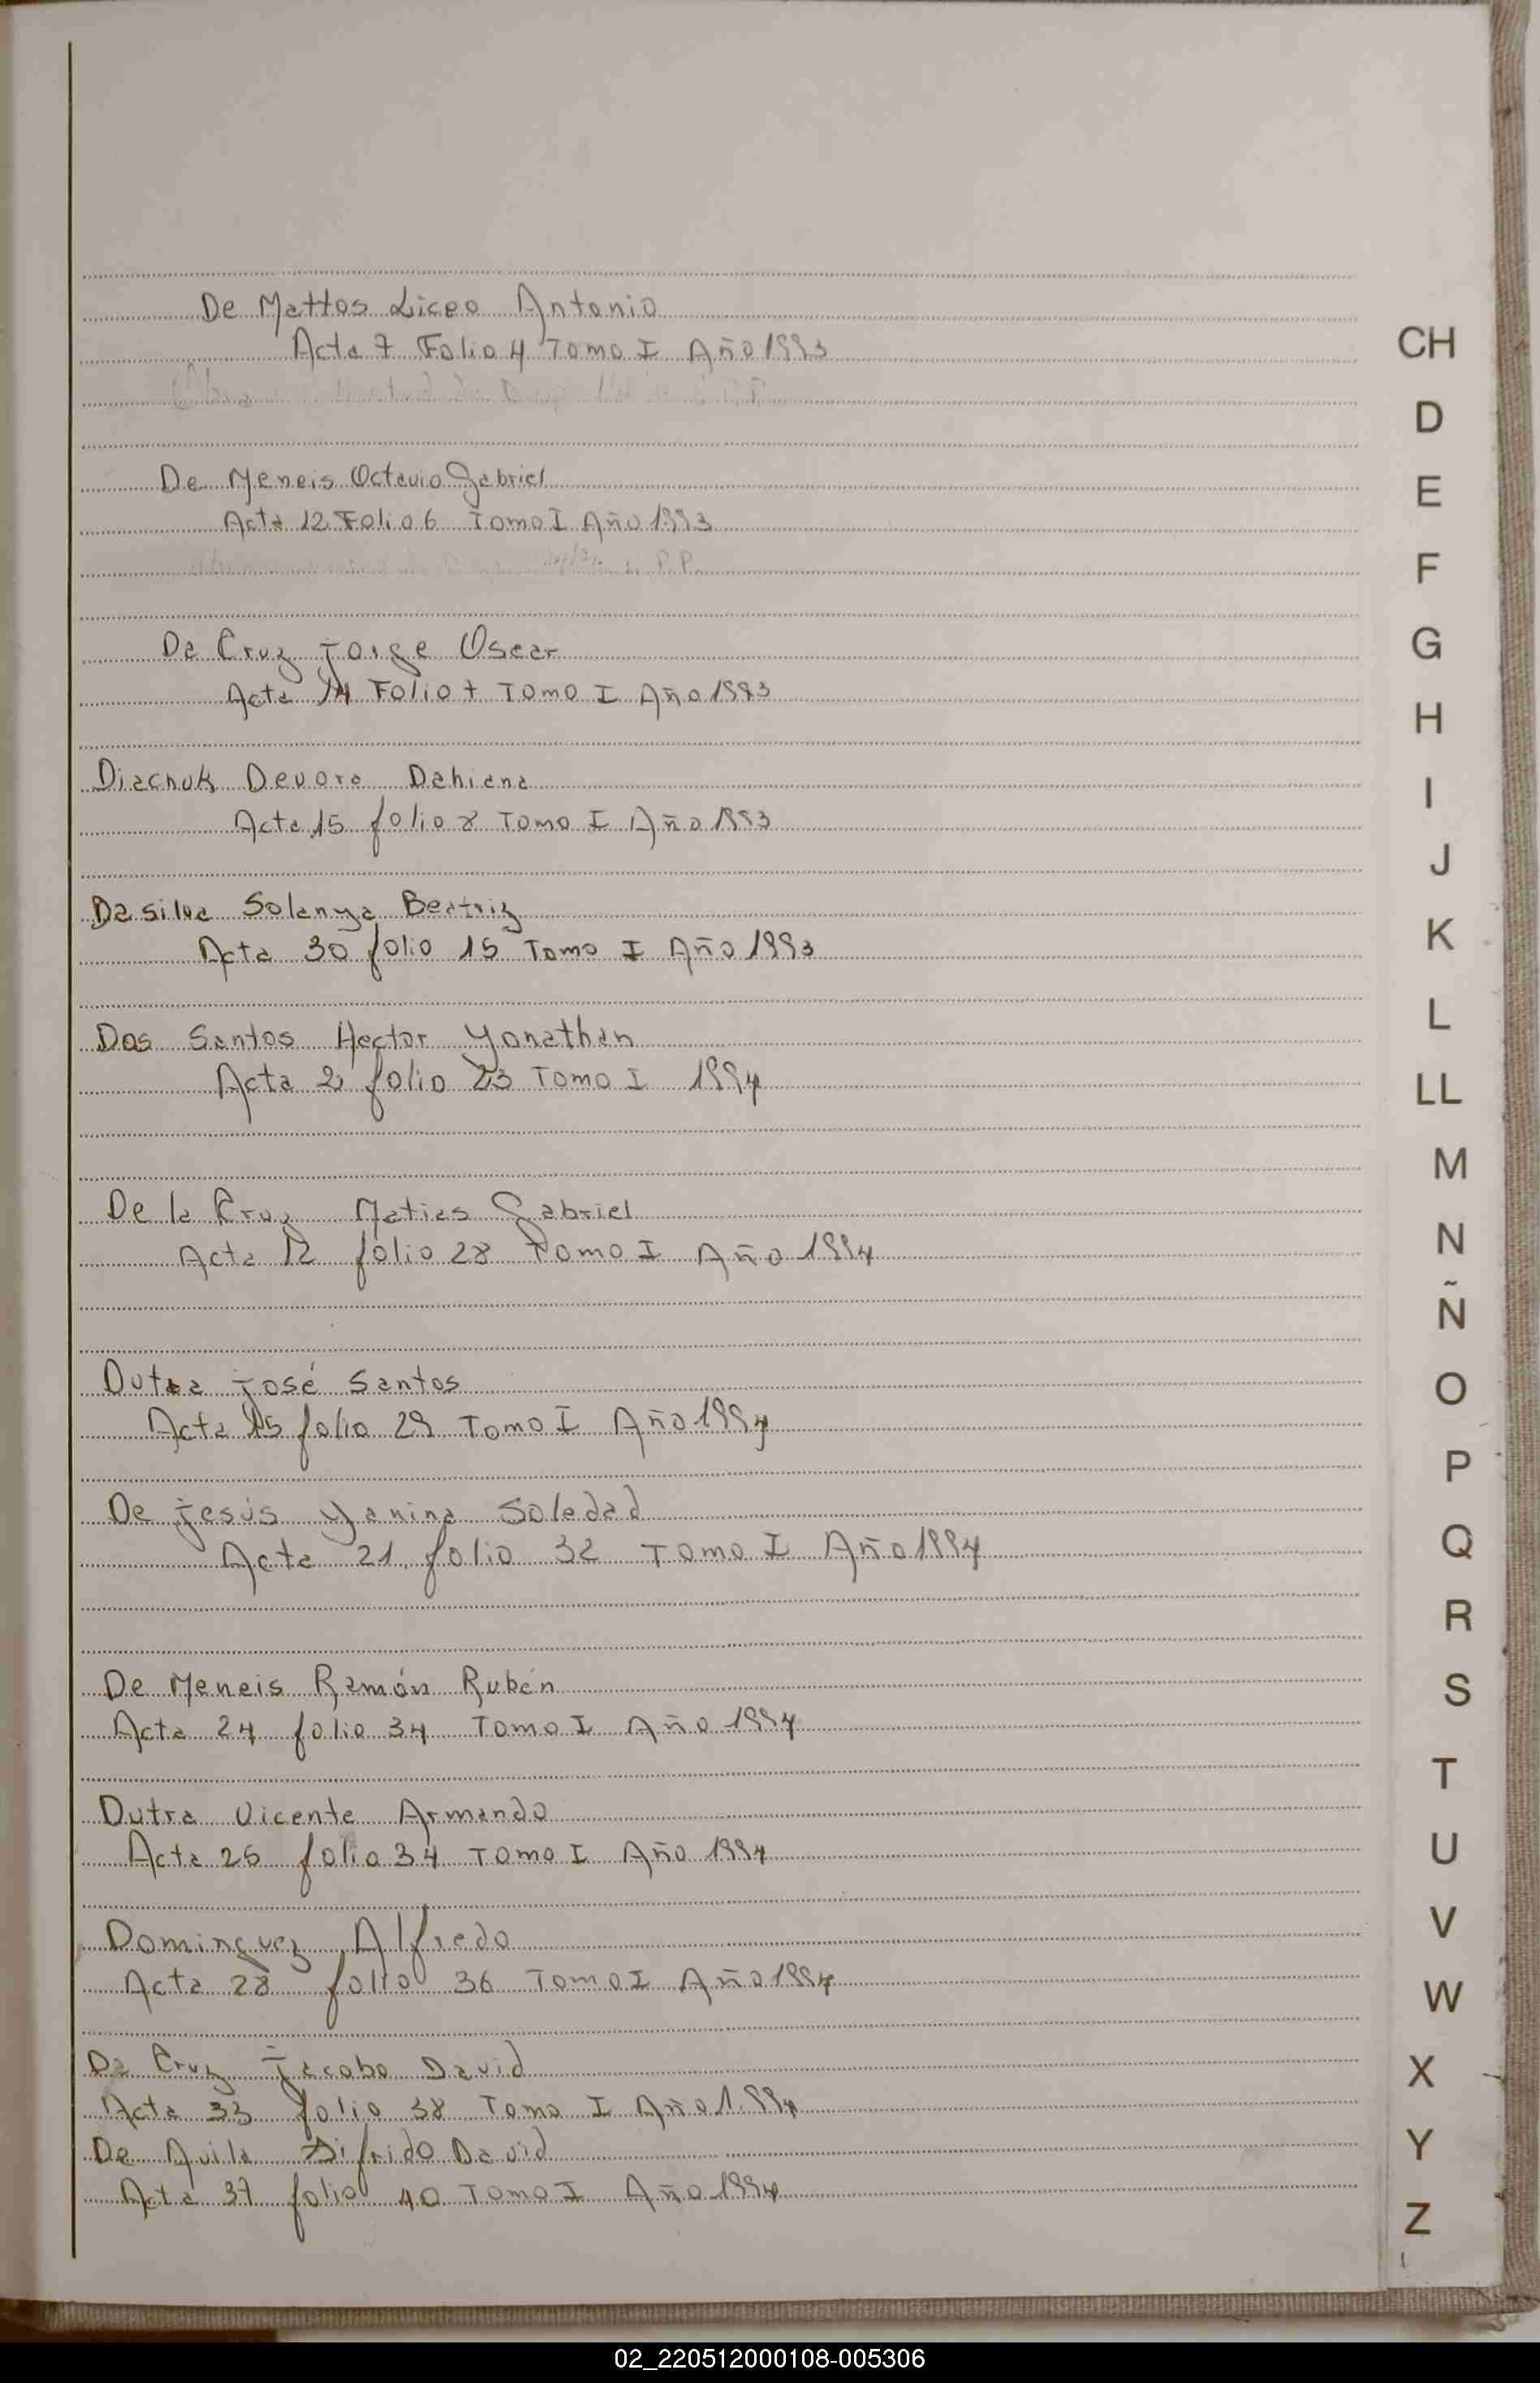 De Mattos Liceo Antonio
Acta 7 Folio 4 Tomo I Año 1993
De Meneis Octavio Gabriel
Acta 12 Folio 6 Tomo I Año 1993
P.P.
Da Cruz Jorge Oscar
Acta 14 Folio 7 Tomo I Año 1993
Diachuk Devora Dahiana
Acta 15 folio 8 Tomo I Año 1993
Da silva Solanya Beatriz
Acta 30 folio 15 Tomo I Año 1993
Dos Santos Hector Yonathan
Acta 2 folio 23 Tomo I 1994
De la Cruz Matias Gabriel
Acta 12 folio 28 Tomo I Año 1994
Dutra José Santos
Acta 15 folio 29 Tomo I Año 1994
De Jesús Yanina Soledad
Acta 21 folio 32 Tomo I Año 1994
De Meneis Ramón Rubén
Acta 24 folio 34 Tomo I Año 1994
Dutra Vicente Armando
Acta 25 folio 34 Tomo I Año 1994
Dominguez Alfredo
Acta 28 folio 36 Tomo I Año 1994
Da Cruz Jacobo David
Acta 33 folio 38 Tomo I Año 1.994
De Avila Sifrido David
Acta 37 folio 40 Tomo I Año 1994
CH
D
E
F
G
H
I
J
K
L
LL
M
N
Ñ
O
P
Q
R
S
T
U
V
W
X
Y
Z
02_220512000108-005306